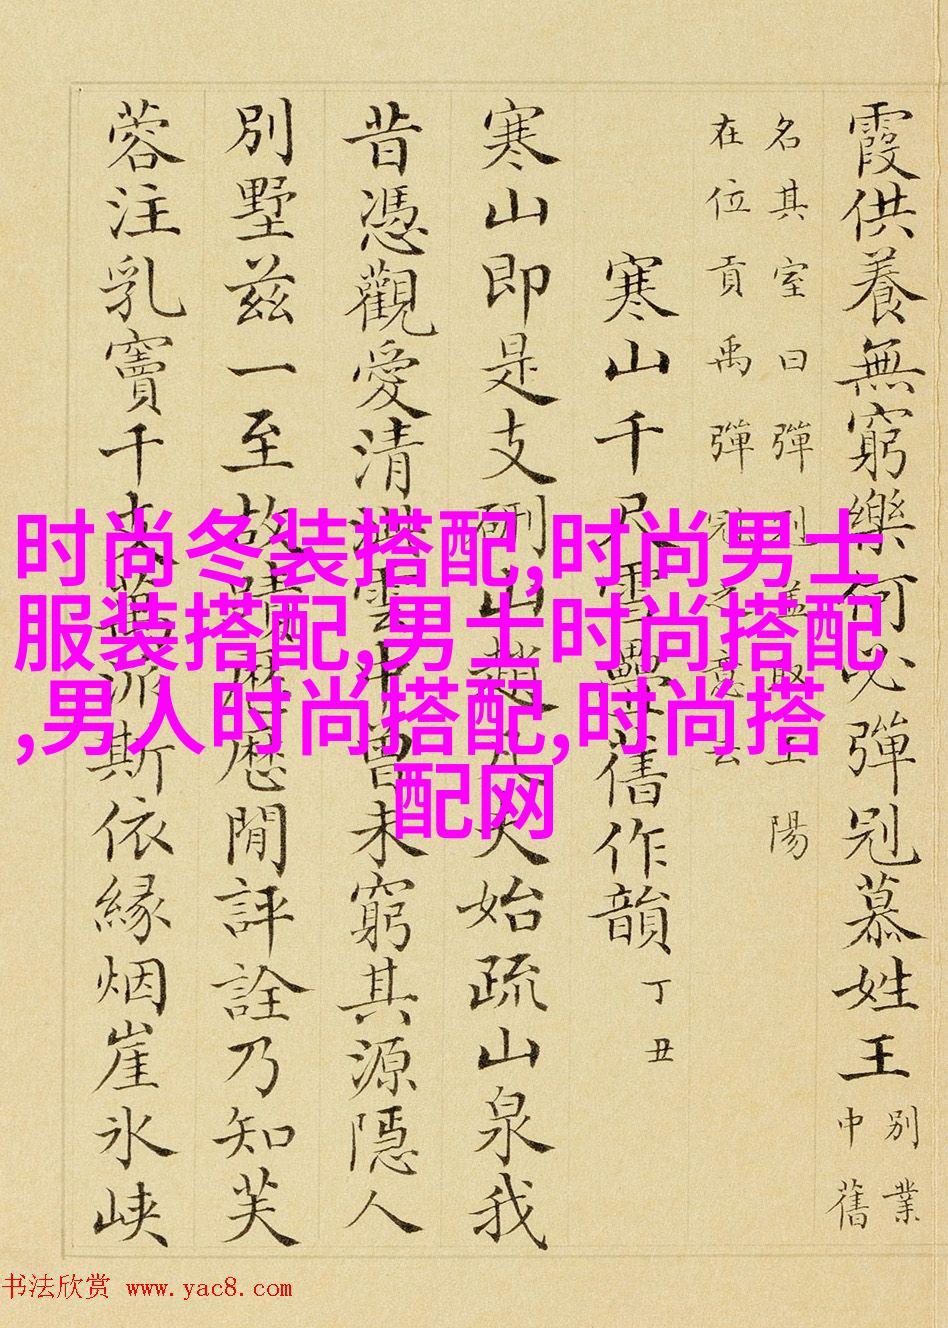 霞供養無窮樂何必彈冠慕姓王別業
中舊
名其室曰彈冠蓋取王陽
在位貢禹彈冠之意云
寒山千尺雪疊舊作韻丁丑
寒山即是支硎山趙
始疏山泉我
昔憑觀愛清
雲中曾未窮其源隱人
別墅茲一至故
歷閒評詮乃知芙
蓉注乳竇千丈萬派斯依緣烟崖氷峽
时尚冬装搭配,时尚男士
服装搭配,男士时尚搭配
,男人时尚搭配,时尚搭
配网
书法欣赏 www.yac8.com